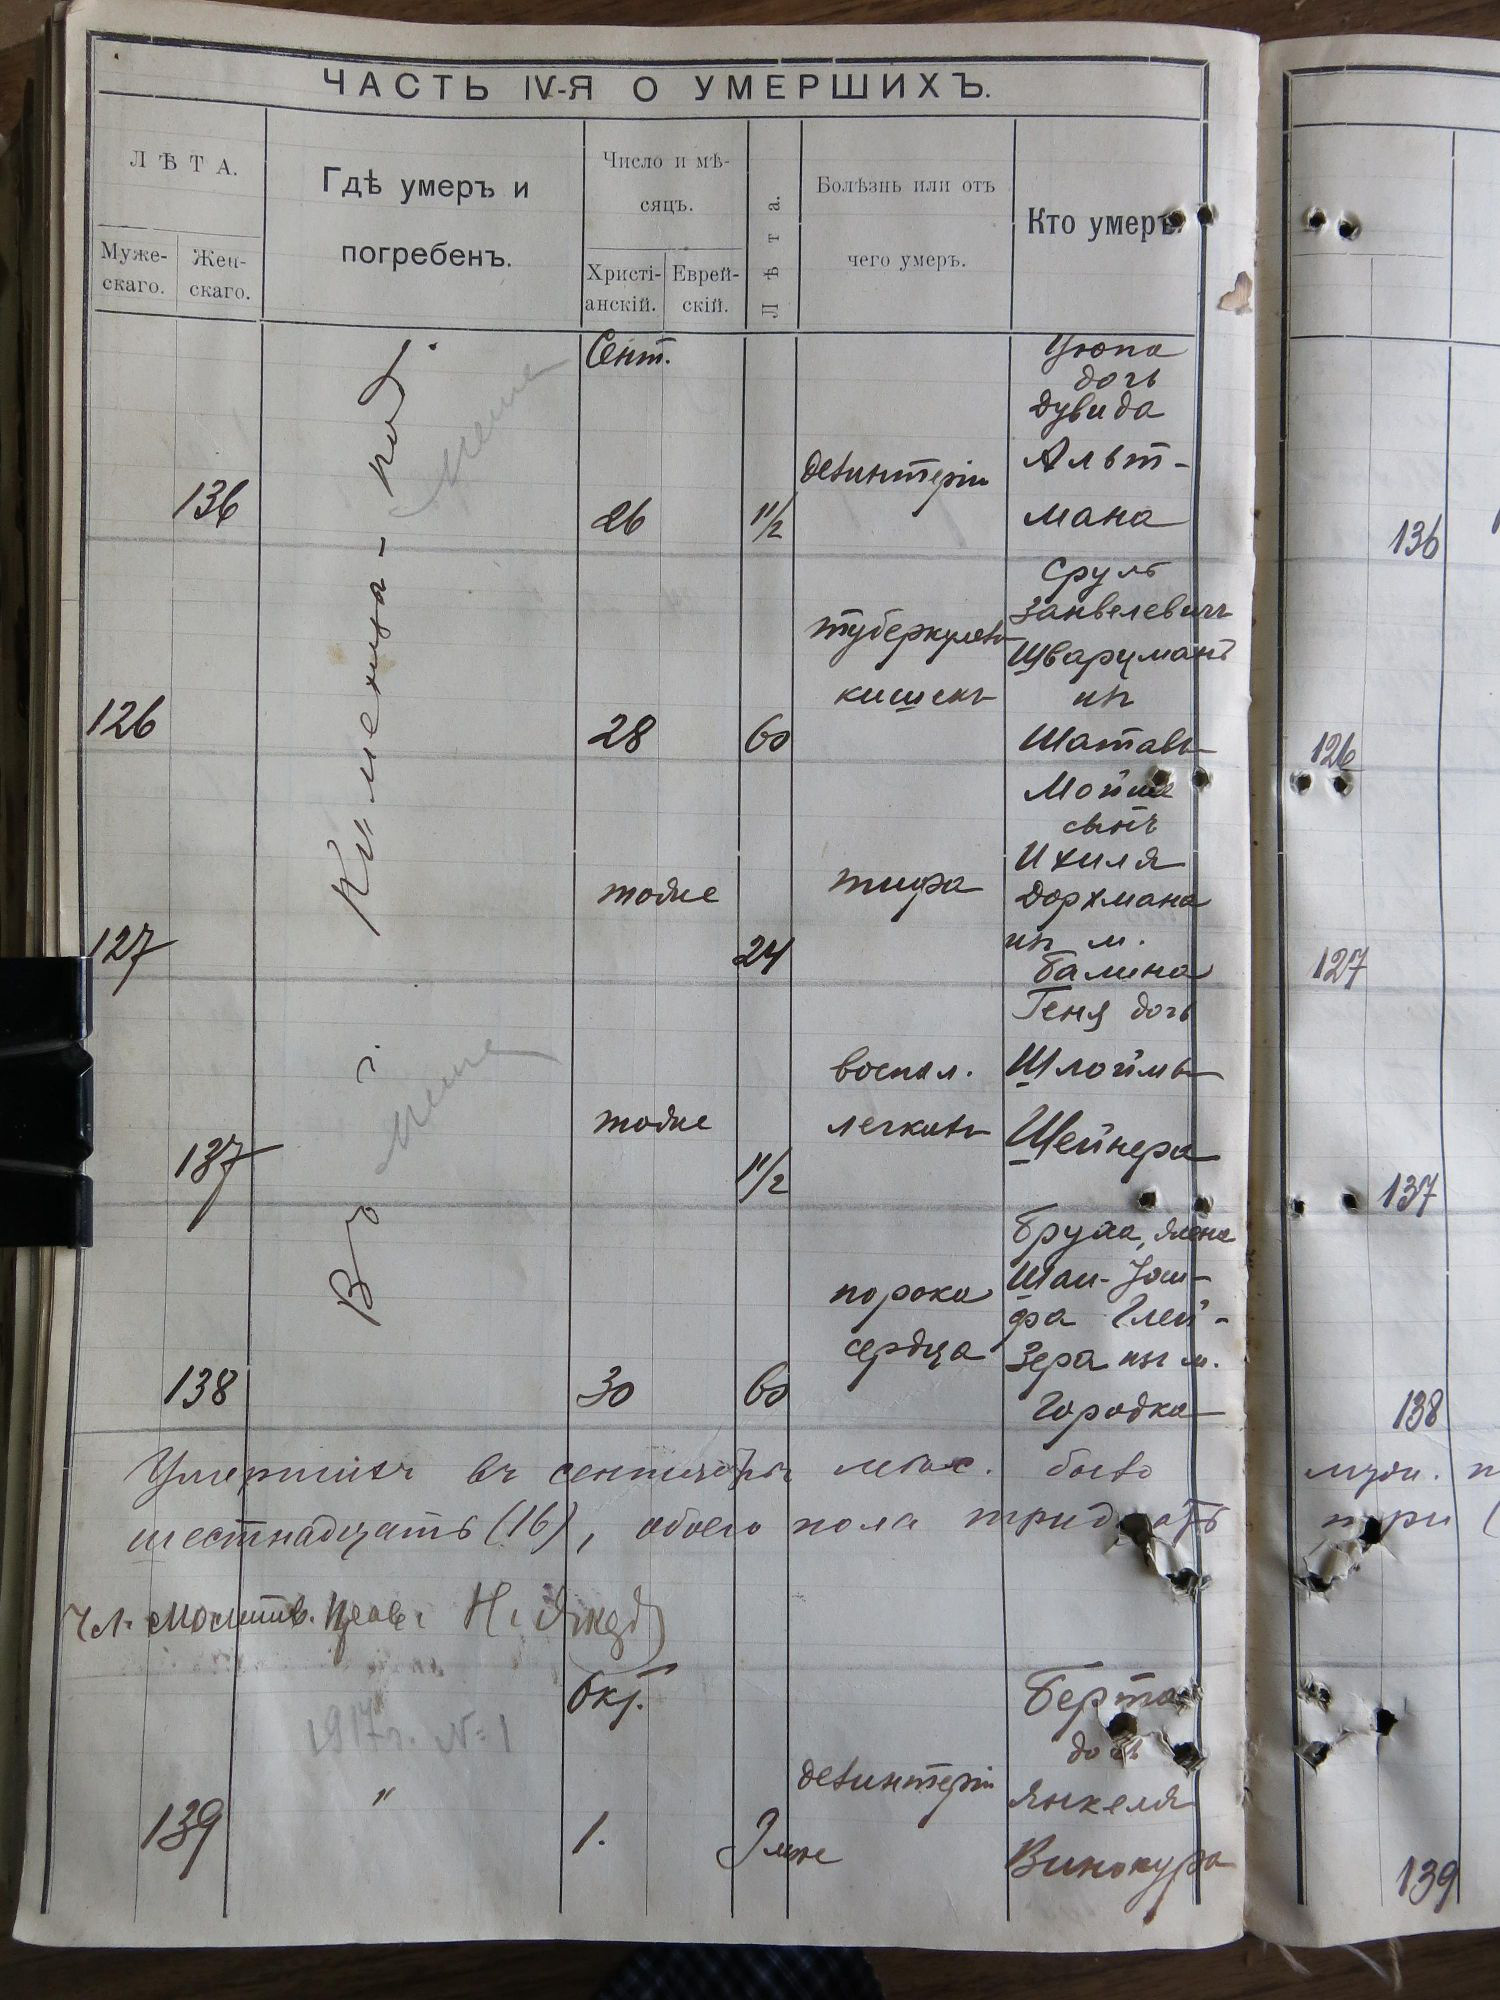 ЧАСТЬ IV-Я О УМЕРШИХЪ.
ЛѢТА.
Муже-
скаго.
Жен-
скаго.
Гдѣ умеръ и
погребенъ.
Число и мѣ-
сяцъ.
Христі-
анскій.
Еврей-
скій.
Лѣта.
Болѣзнь или отъ
чего умеръ.
Кто умеръ.
Въ г. Кишенца-
Сент.
136
26
1 1/2
дезинтеріи
дочь
Дувида
Альт-
мана
136
126
28
60
туберкулезъ
кишекъ
Сруль
Занвелевичъ
Шварцманъ
изъ
Шатавы
126
127
тоже
24
тифа
Мойше
сынъ
Ихиля
Дорхмана
изъ м.
Балина
127
137
тоже
1 1/2
воспал.
легкихъ
Геня дочь
Шлоймы
Шейнера
137
138
30
60
порока
сердца
Бруха, жена
фа Глей-
зера изъ м.
Городка
138
Умершихъ въ сентябрѣ мѣс. было муж. п
шестнадцать (16), обоего пола тридцать три (
1917 г. № 1
Окт.
139
"
1.
дезинтеріи
Берта
дочь
Янкеля
Винокура
139